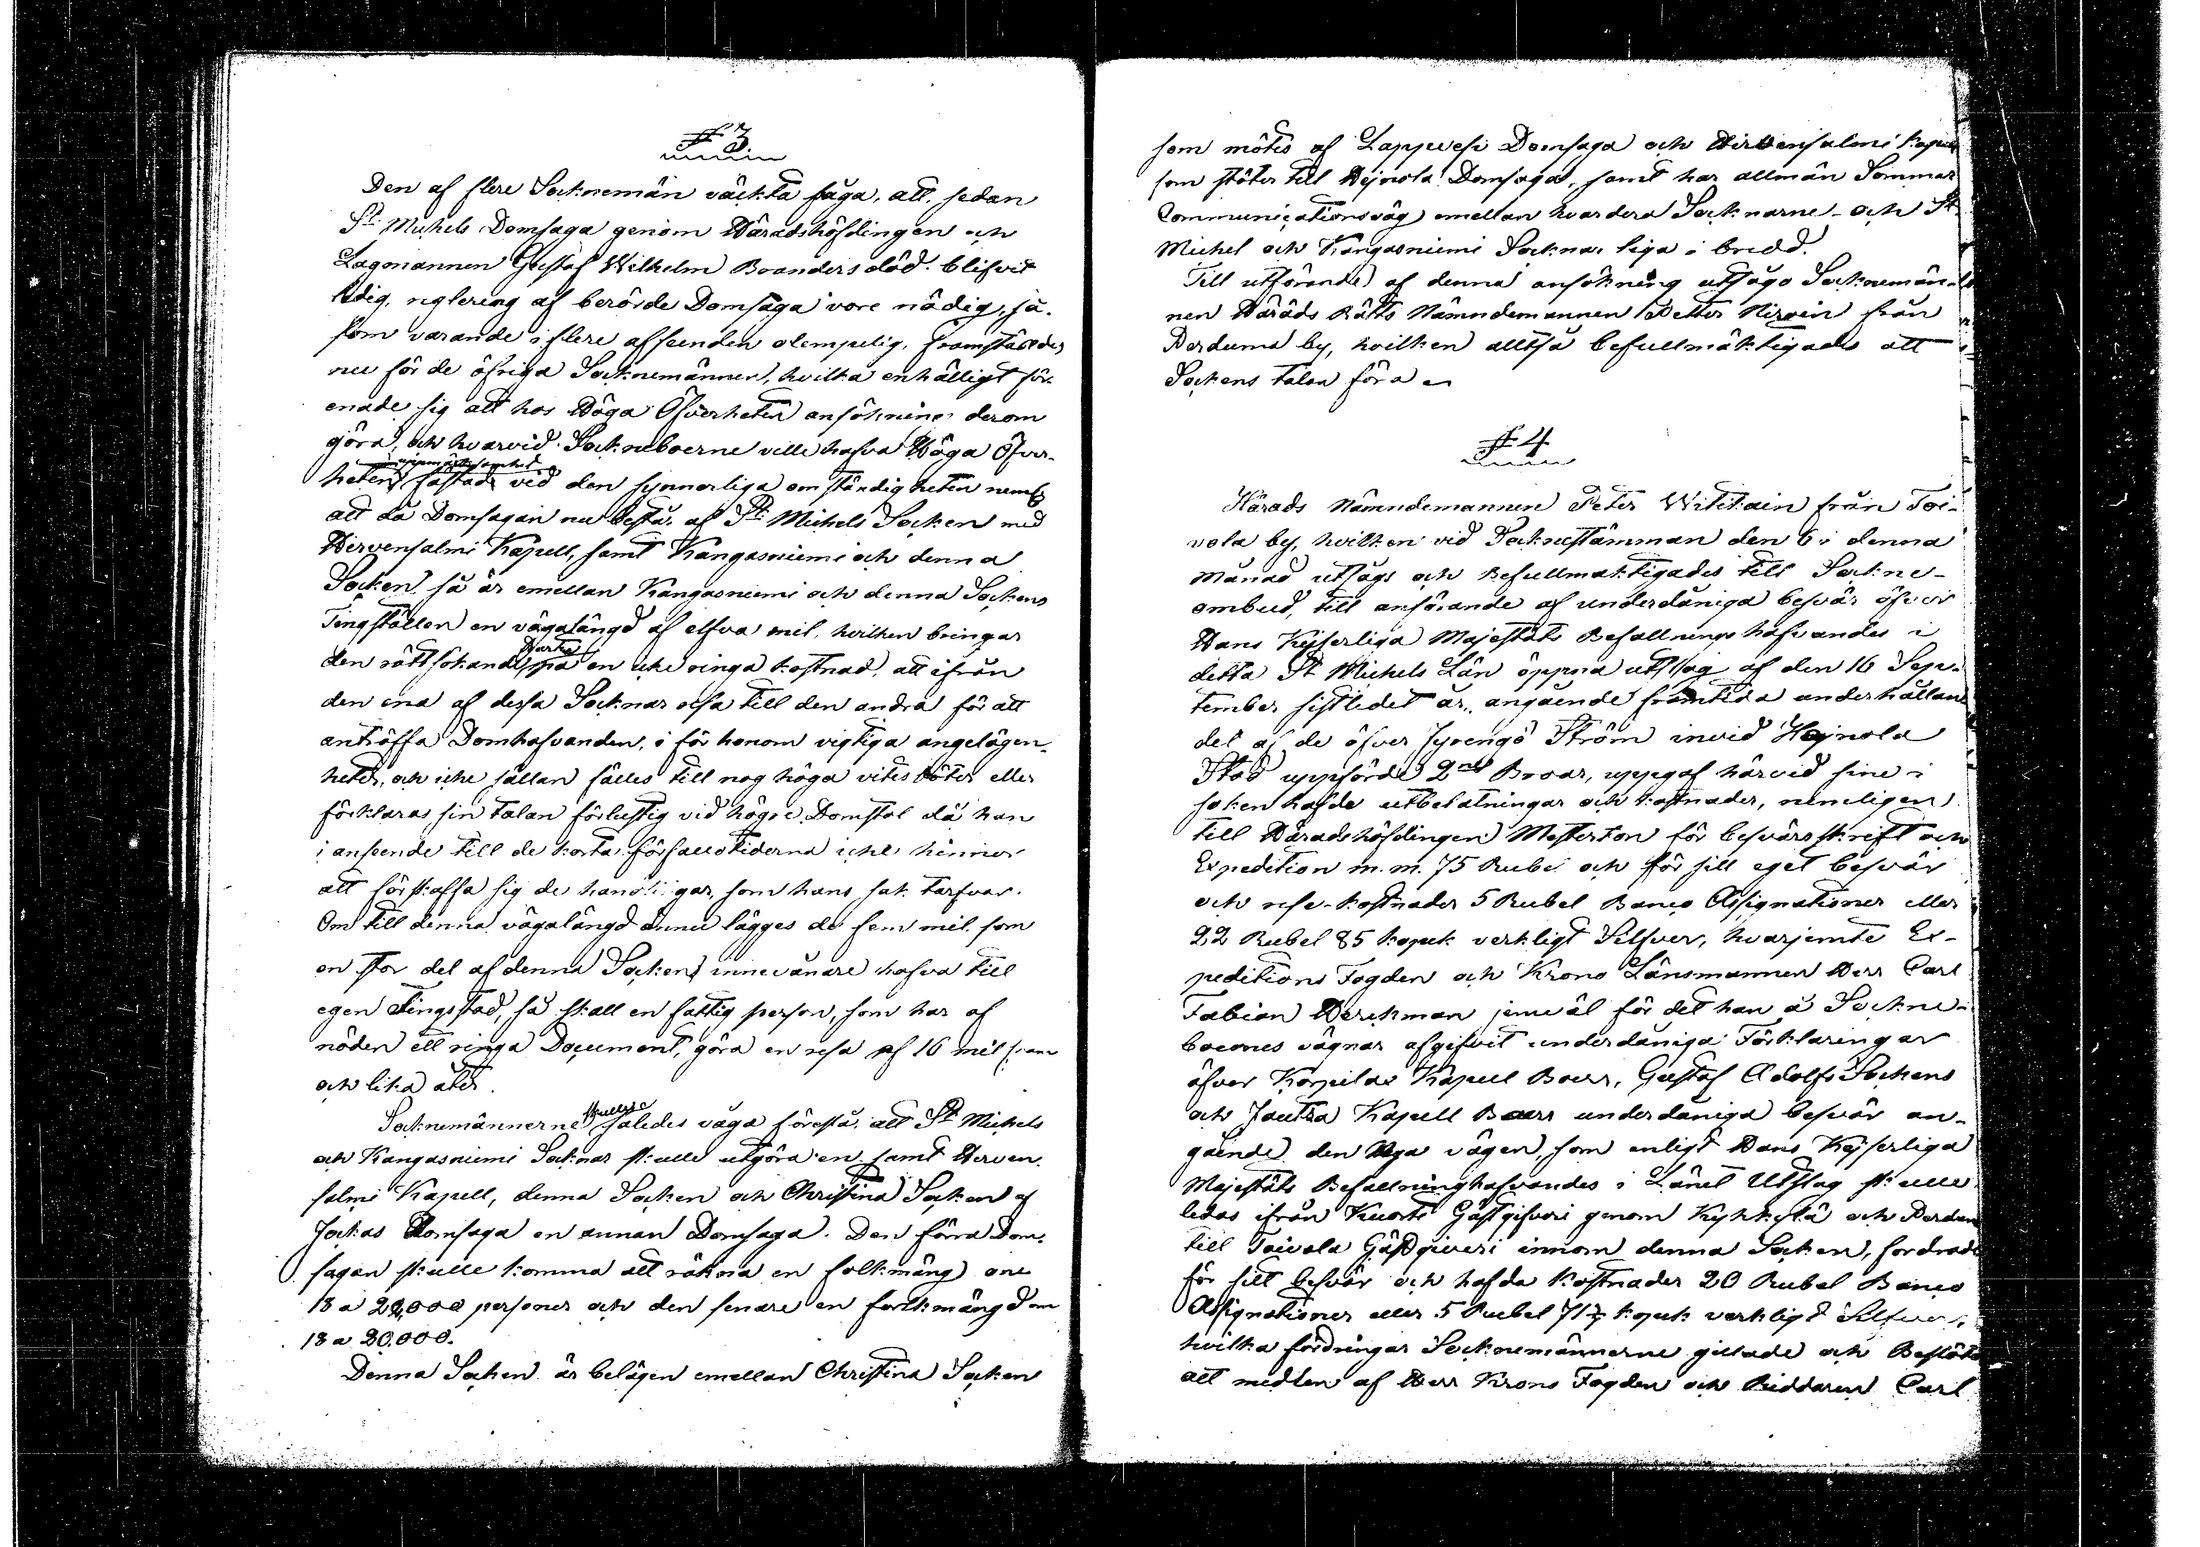 § 3
Den af flere Socknemän väckta fråga, att, sedan
St. Michels Domsaga genom Häradshöfdingen och
Lagmannen Gustaf Wilhelm Branders död blifvit
ledig, reglering af berörde Domsaga vore nödig, så-
som varande i flere afseenden olempelig, framstäldes
nu för de öfriga Socknemännen, hvilka enhälligt för-
enade sig att hos Höga Öfverheten ansökning derom
göra, och hvarvid Sockneboerne ville hafva Höga Öfver-
uppmärksamhet
heten fästade vid den synnerliga omständigheten neml.
att då Domsagan nu består af St: Michels Socken med
Hirvensalmi Kapell, samt Kangasniemi och denna
Socken, så är emellan Kangasniemi och denna Sockens
Tingställen en vägalängd af elfva mil, hvilken bringar
den rättsökande på en icke ringa kostnad, att ifrån
den ena af dessa Socknar resa till den andra för att
anträffa Domhafvanden, i för honom vigtiga angelägen-
heter, och icke sällan fälles till nog höga vites böter eller
förklaras sin talan förlustig vid högre Domstol då han
i anseende till de korta försallotiderna icke hinner
att förskaffa sig de handlingar, som hans sak tarfvar.
Om till denna vägalängd ännu lägges de fem mil som
en stor del af denna Sockens innevånare hafva till
egen Tingstad, så skall en fattig person, som har af
nöden ett ringa Document, göra en resa af 16 mil fram
och lika åter.
skulle
Socknemännerne således våga föreslå, att St: Michels
och Kangasniemi Socknar skulle utgöra en samt Hirven-
salmi Kapell, denna Socken och Christina Socken af
Jockas Domsaga en annan Domsaga. Den förra Dom-
sagan skulle komma att räkna en folkmängd om
18 a 22,000 personer och den senare en folkmängd om
18 a 20.000.
Denna Socken är belägen emellan Christina Socken
som mötes af Lappvesi Domsaga och Hirvensalmi Kapell
som stöter till Hejnola Domsaga, samt har allmän Sommar
Communicationsväg emellan hvardera Socknarne och St
Michel och Kangasniemi Socknar liga i bredd.
Till utförande af denna ansökning utsågo Socknemän-
nen Härads Rätts Nämndemannen Petter Hirvein från
Parduma by, hvilken alltså befullmäktigades att
Sockens talan föra
§ 4
Härads Nämndemannen Peter Witikain från Toi-
vola by, hvilken vid Sockenstämman den 6 i denna
månad utsågs och Befullmäktigades till Sockne-
ombud, till anförande af underdåniga besvär öfver
Hans Kejserliga Majestäts Befallningshafvandes i
detta St Michels Län öppna utslag af den 16 Sep-
tember sistledet år, angående framtida underhållan-
det af de öfver Jyrengö Ström invid Hejnola
Stad uppförde 2ne Broar, uppgaf härvid sine i
saken hafde utbetalningar och kostnader, nemligen
till Häradshöfdingen Masterton för besvärsskrift och
Expedition m.m. 75 Rubel och för sitt eget besvär
och rese-kostnader 5 Rubel Banco Assignationer eller
22 Rubel 85 kopek verkligt Silfver, hvarjemte Ex-
peditions Fogden och Krono Länsmannen Herr Carl
Fabian Herckman jemväl för det han å Sockne-
boernes vägnar afgifvit underdåniga Förklaringar
öfver Korpilax Kapell Boers, Gustaf Adolfs Sockens
och Joutsa Kapell Boers underdåniga besvär an-
gående den Nya vägen, som enligt Hans Kejserliga
Majestäts Befallninghafvandes i Länet Utslag skulle
ledas ifrån Kuorti Gästgifveri genom Kyhkylä och Pardum
till Toivola Gästgiveri innom denna Socken, fordrade
för sitt besvär och hafda kostnader 20 Rubel Banco
Assignationer eller 5 Rubel 71 kopek verkligt Silfver,
hvilka fordringar Socknemännerne gillade och Beslöto
att medlen af Herr Krono Fogden och Riddaren Carl